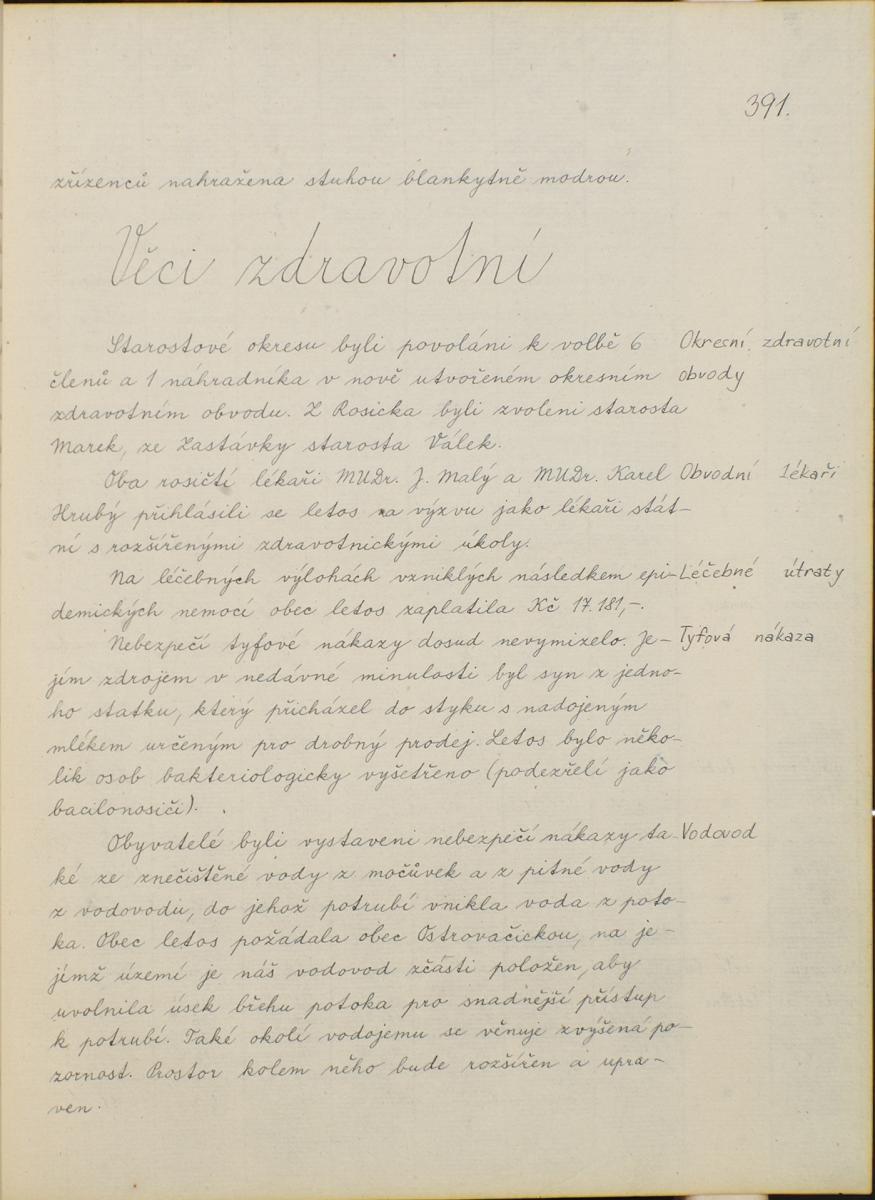 391.
zřízenců nahražena stuhou blankytně modrou.
Věci zdravotní
Starostové okresu byli povoláni k volbě 6 Okresní zdravotní
členů a 1 náhradníka v nově utvořeném okresním obvody
zdravotním obvodu. Z Rosicka byli zvoleni starosta
Marek, ze Zastávky starosta Válek.
Oba rosičtí lékaři MUDr. J. Malý a MUDr. Karel Obvodní lékaři
Hrubý přihlásili se letos na výzvu jako lékaři stát-
ní s rozšířenými zdravotnickými úkoly.
Na léčebných výlohách vzniklých následkem epi- Léčebné útraty
demických nemocí obec letos zaplatila Kč 17.181,-.
Nebezpečí tyfové nákazy dosud nevymizelo. Je- Tyfová nákaza
jím zdrojem v nedávné minulosti byl syn z jedno-
ho statku, který přicházel do styku s nadojeným
mlékem určeným pro drobný prodej. Letos bylo něko-
lik osob bakteriologicky vyšetřeno (podezřelí jako
bacilonosiči).
Obyvatelé byli vystaveni nebezpečí nákazy ta- Vodovod
ké ze znečištěné vody z močůvek a z pitné vody
z vodovodu, do jehož potrubí vnikla voda z poto-
ka. Obec letos požádala obec Ostrovačickou, na je-
jímž území je náš vodovod zčásti položen, aby
uvolnila úsek břehu potoka pro snadnější přístup
k potrubí. Také okolí vodojemu se věnuje zvýšená po-
zornost. Prostor kolem něho bude rozšířen a upra-
ven.